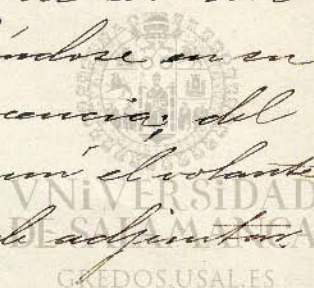 ndose en su
cancia; del
un el volante
le adjuntas.
VNiVERSiDAD
DE SALAMANCA
GREDOS.USAL.ES